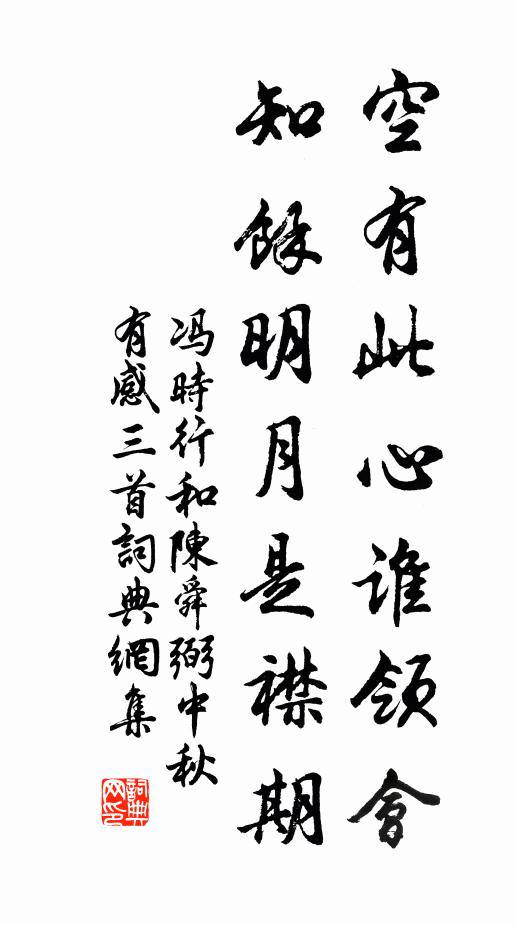 空有此心誰領會
知餘明月是襟期
馮時行和陳舜弼中秋
有感三首詞典網集
詞典
网印